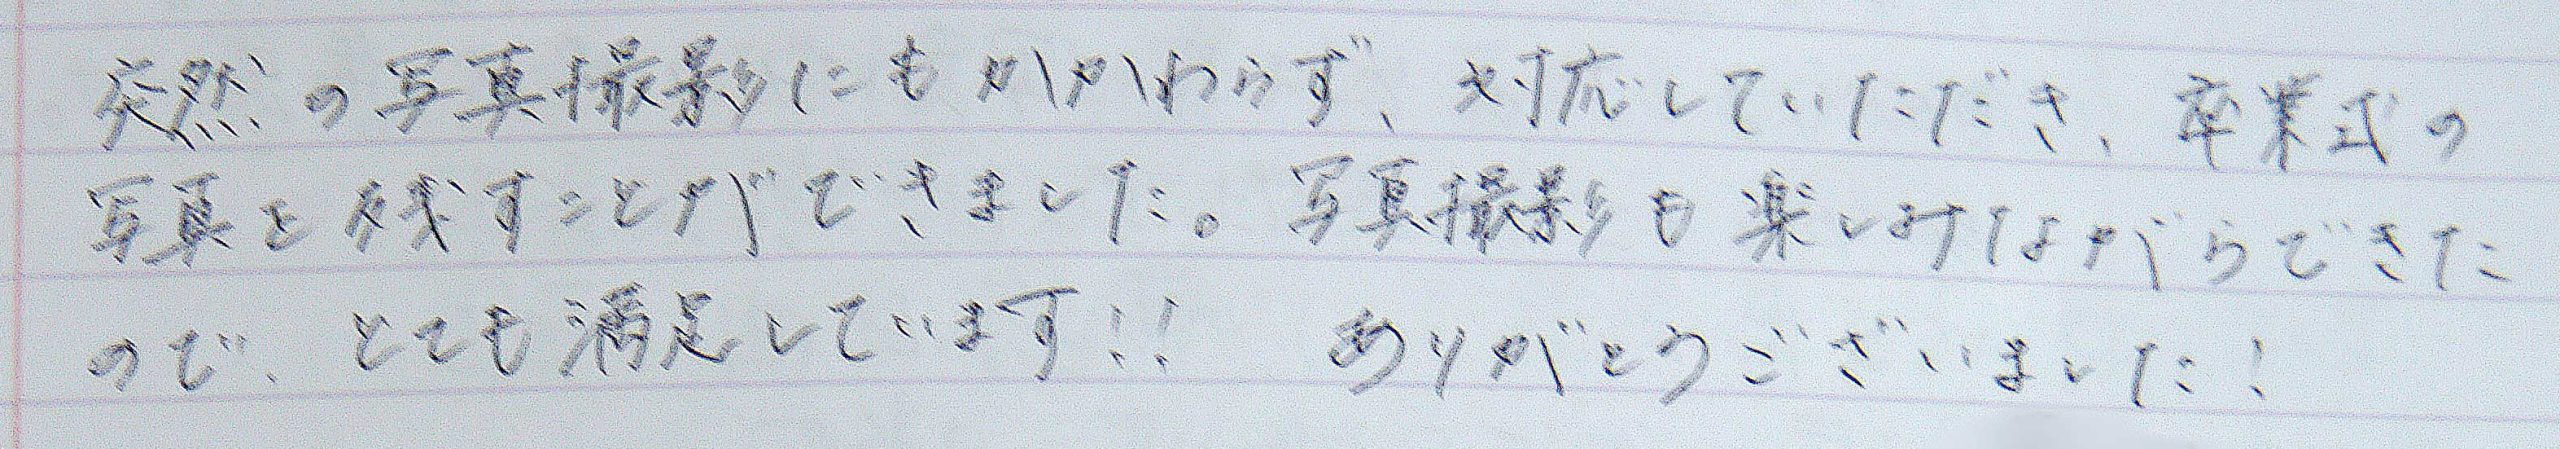 突然の写真撮影にもかかわらず、対応していただき、卒業式の
写真を残すことができました。写真撮影も楽しみながらできた
ので、とても満足しています!! ありがとうございました!